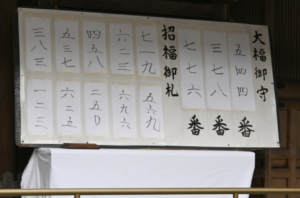 大福御守
五四四番
七三八番
七七六番
招福御札
七一九
六二三
四五八
五三七
三八三
五六九
六九六
二五〇
六二五
一二三